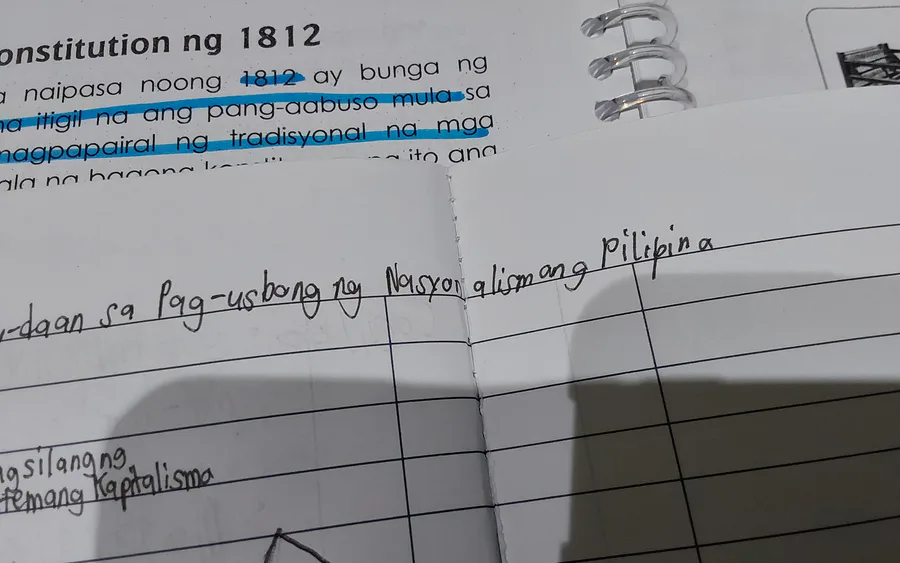 onstitution ng 1812
a naipasa noong 1812 ay bunga ng
na itigil na ang pang-aabuso mula sa
nagpapairal ng tradisyonal na mga
ito ang
-daan sa Pag-usbong ng Nasyonalismang Pilipina
gsilangng
temang Kaptalisma